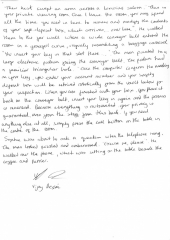 There was, except an oval wooden
private viewing room. Once I leave the room, you may spend
all the time you need in here to review and manage the contents
of your safe-deposit box, which over on over here." He walked
them to the far wall. When a wide conveyor belt entered the
room in a graceful curve, vaguely resembling a baggage carousel.
"You insert your key in that slot there." The man pointed to a
large electronic podium facing the conveyor belt. The podium had
a familiar triangular hole. "Once the computer confirms the markings
on your key, you enter your account number, and your safety
deposit box will be retrieved robotically from the vault below for
your inspection. When you are finished with your box, you place it
back on the conveyor belt, insert your key in again, and the process
is reversed. Because everything is automated, your privacy is
guaranteed, even from the staff from this bank. If you need
anything else at all, simply press the call button on the table in
the center of the room.
Sophie was about to ask a question when the telephone rang.
The man looked puzzled and embarrassed. "Excuse me, please." He
walked over to the phone, which was sitting on the table beside the
coffee and
Vijay